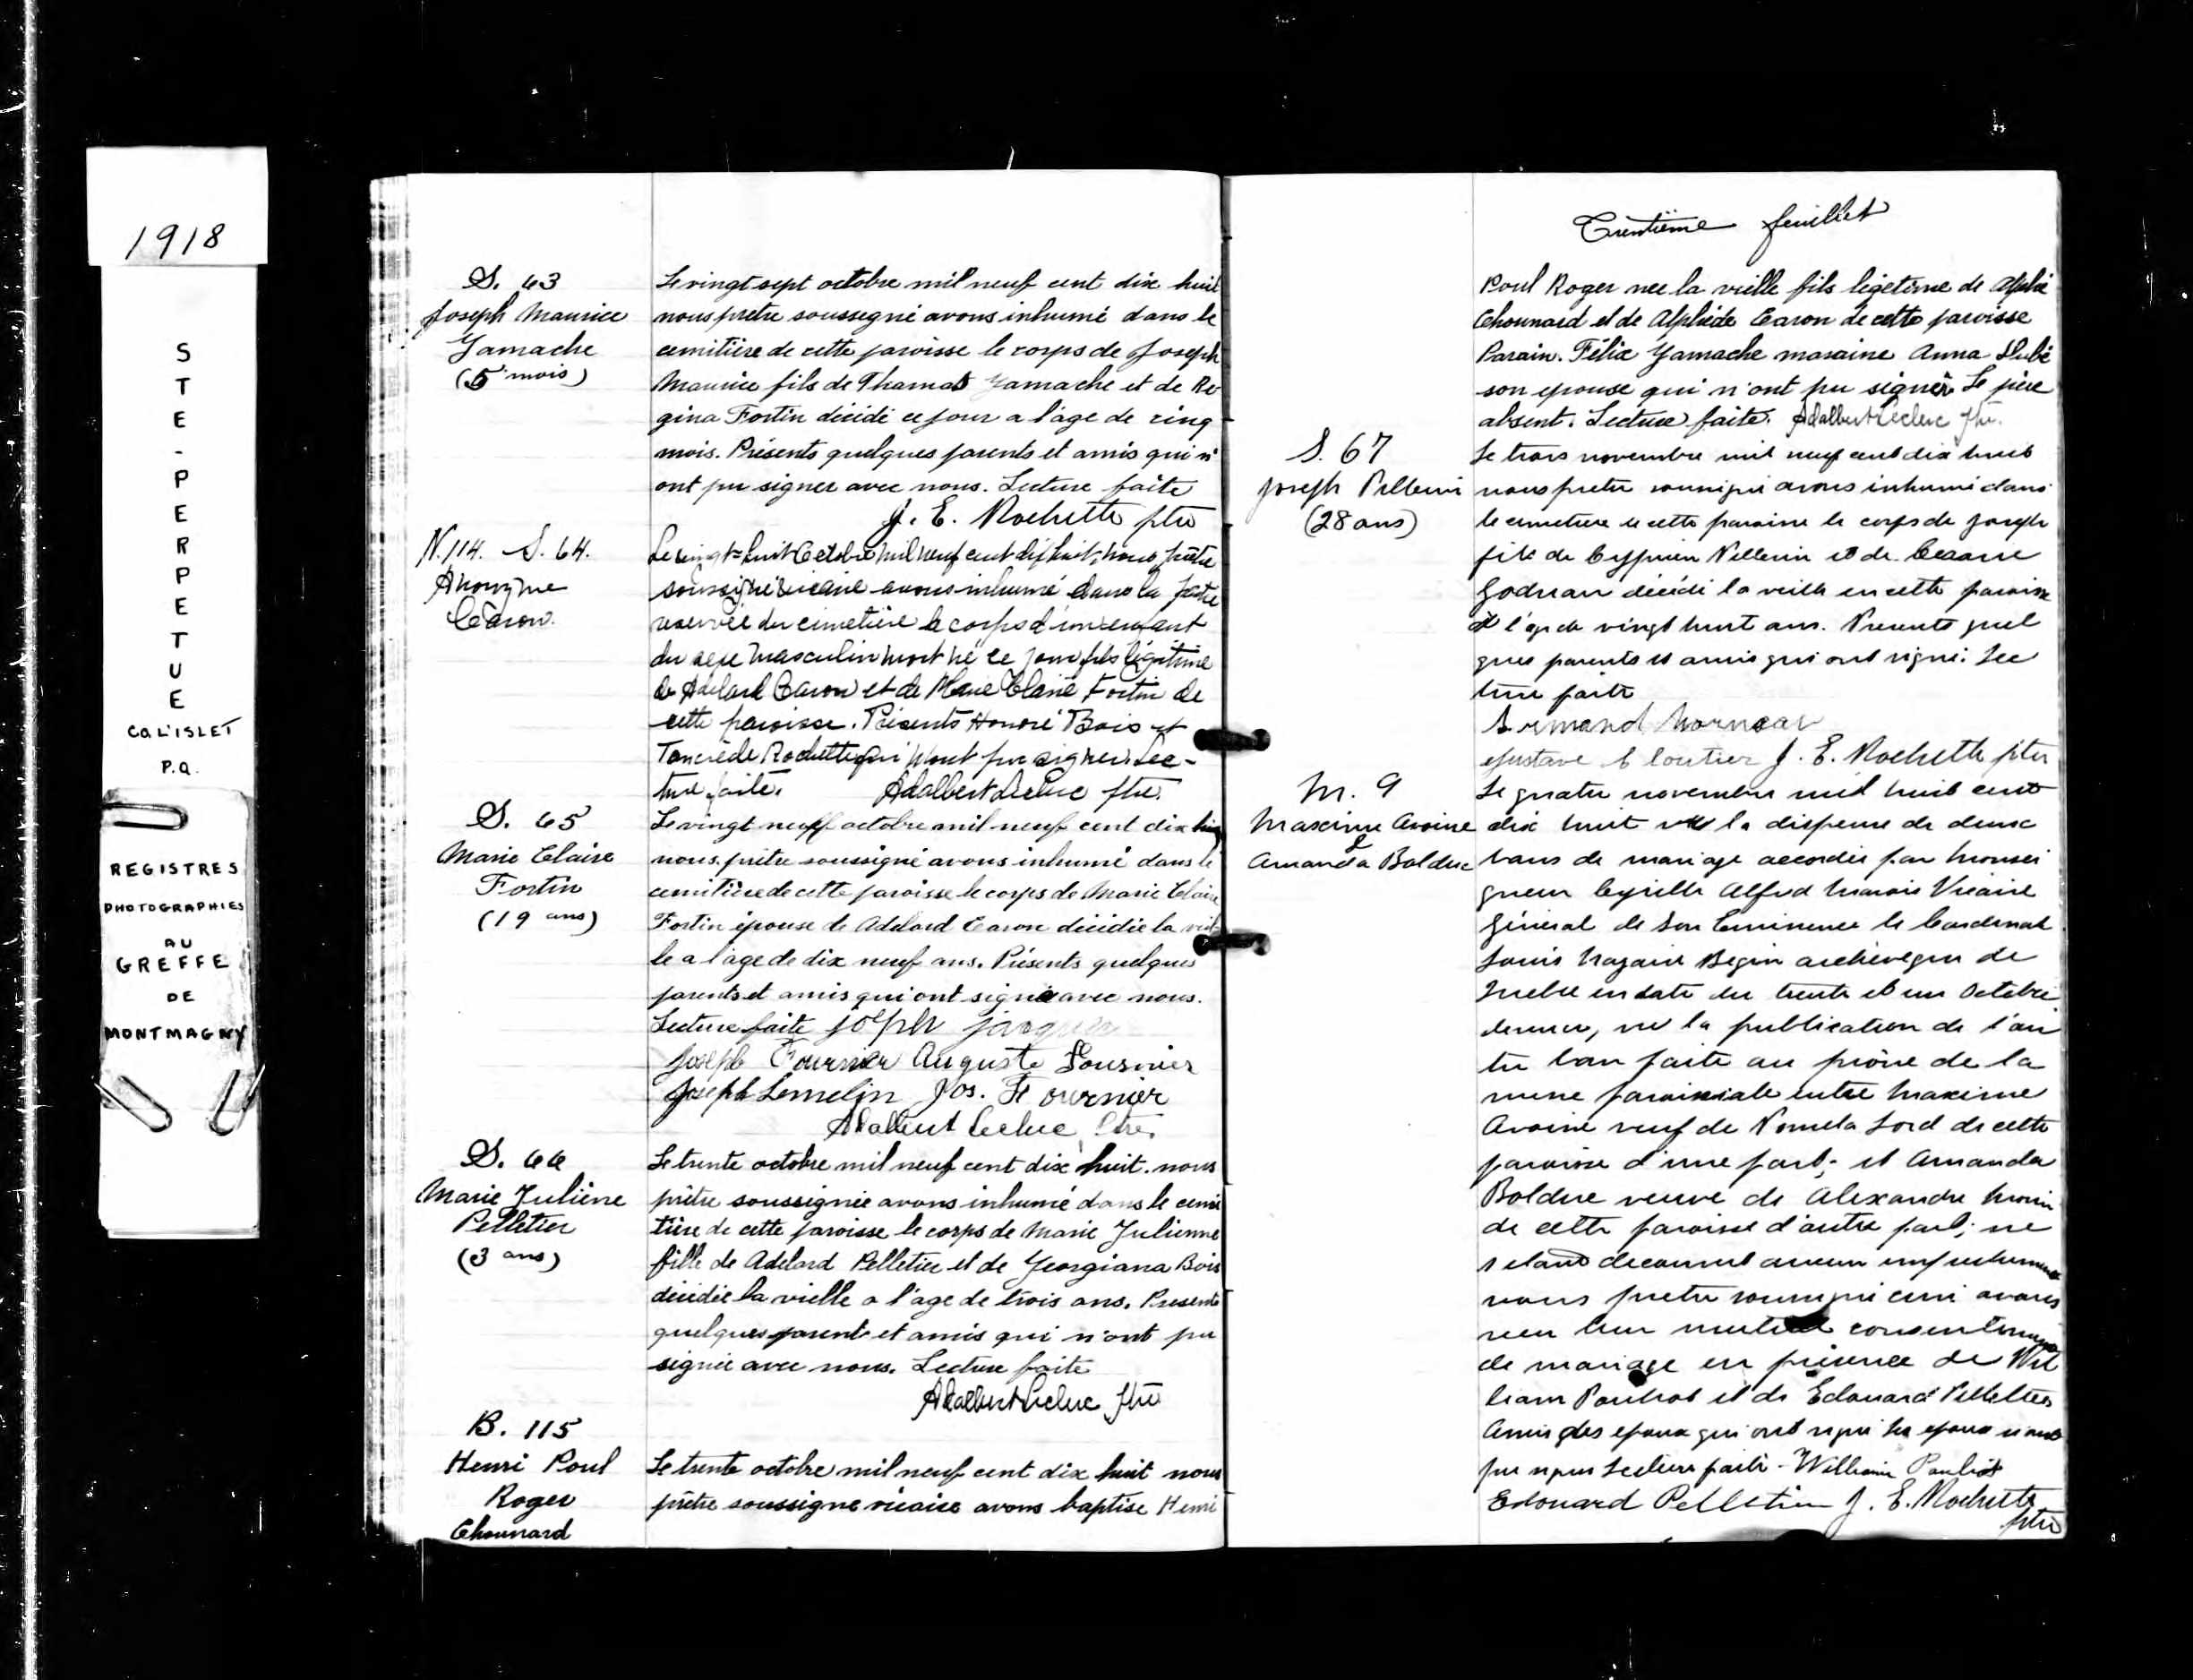 1918
STE-PERPETUE
CO L'ISLET
P.Q.
REGISTRES
PHOTOGRAPHIES
AU
GREFFE
DE
MONTMAGNY
S. 63
Joseph Maurice
Gamache
(5 mois)
Le vingt sept octobre mil neuf cent dix huit
nous pretre soussegné avons inhumé dans le
cemitière de cette paroisse le corps de Joseph
Maurice fils de Thomas Gamache et de Re-
gina Fortin décidé ce jour a l'àge de cinq
mois. Présents quelques parents et amis qui n'
ont pu signer avec nous. Lecture faite
J. E. Rochette ptre
N. 114. S. 64.
Anonyme
Caron.
Le vingt-huit Octobre mil neuf cent dix huit, nous prêtre
soussigné vicaire avons inhumé dans la partie
réservée du cimetière le corps d'un enfant
du sexe masculin mort né ce jour fils légitime
de Adelard Caron et de Marie Claire Fortin de
cette paroisse. Présents Honoré Bois et
Tancrède Rochette qui n'ont pu signer. Lec-
ture faite. Adalbert Leclerc ptre.
S. 65
Marie Claire
Fortin
(19 ans)
Le vingt neuf octobre mil neuf cent dix huit
nous prêtre soussigné avons inhumé dans le
cemitière de cette paroisse le corps de Marie Claire
Fortin épouse de Adelard Caron décidée la viel
le a l'age de dix neuf ans. Présents quelques
parents et amis qui ont signé avec nous.
Lecture faite
Joseph Fournier Auguste Fournier
Joseph Lemelin Jos. Fournier
Adalbert Leclerc Ptre.
S. 66
Marie Juliène
Pelletier
(3 ans)
Le trente octobre mil neuf cent dix huit. nous
prêtre soussignée avons inhumé dans le cemi
tière de cette paroisse le corps de Marie Julienne
fille de Adelard Pelletier et de Georgiana Bois
décidée la vielle a l'age de trois ans. Presents
quelques parents et amis qui n'ont pu
signée avec nous. Lecture faite
Adalbert Leclerc Ptre
B. 115
Henri Poul
Roger
Chounard
Le trente octobre mil neuf cent dix huit nous
prêtre soussigne vicaire avons baptise Henri
Trentième feuillet
Poul Roger nee la vielle fils légetime de
Chounard et de Alphéda Caron de cette paroisse
Parain. Félix Gamache maraine Anna Dubé
son epouse qui n'ont pu signer Le père
absent. Lecture faite. Adalbert Leclerc Ptre.
S. 67
Joseph Pellerin
(28 ans)
Le trois novembre mil neuf cent dix huit
nous pretre soussigné avons inhumé dans
le cimetiere de cette paroisse le corps de Joseph
fils de Cyprien Pellerin et de
Godreau décédé la veille en cette paroisse
à l'age de vingt huit ans. Presents quel
ques parents et amis qui ont signé. Lec
ture faite
Armand Morneau
Gustave Cloutier J. E. Rochette ptre
M. 9
Maxime Avoine
&
Amanda Bolduc
Le quatre novembre mil huit cent
dix huit vu la dispense de deux
bans de mariage accordée par Monsei
gneur Cyrille Alfred Marois Vicaire
Général de Son Eminence le Cardinal
Louis Nazaire Begin archévêque de
Quebec en date du trente et un Octobre
dernier, vu la publication de l'au
tre ban faite au prône de la
messe paroissiale entre Maxime
Avoine veuf de Lord de cette
paroisse d'une part; et Amanda
Bolduc veuve de Alexandre Morin
de cette paroisse d'autre part; ne
s'etant decouvert aucun empechement
nous pretre soussigné curé avons
reçu leur mutuel consentement
de mariage en présence de Wil
liam Pouliot et de Edouard Pelletier
Amis des epoux qui ont signé les epoux n'ont
pu signer Lecture faite - William Pouliot
Edouard Pelletier J. E. Rochette
ptre